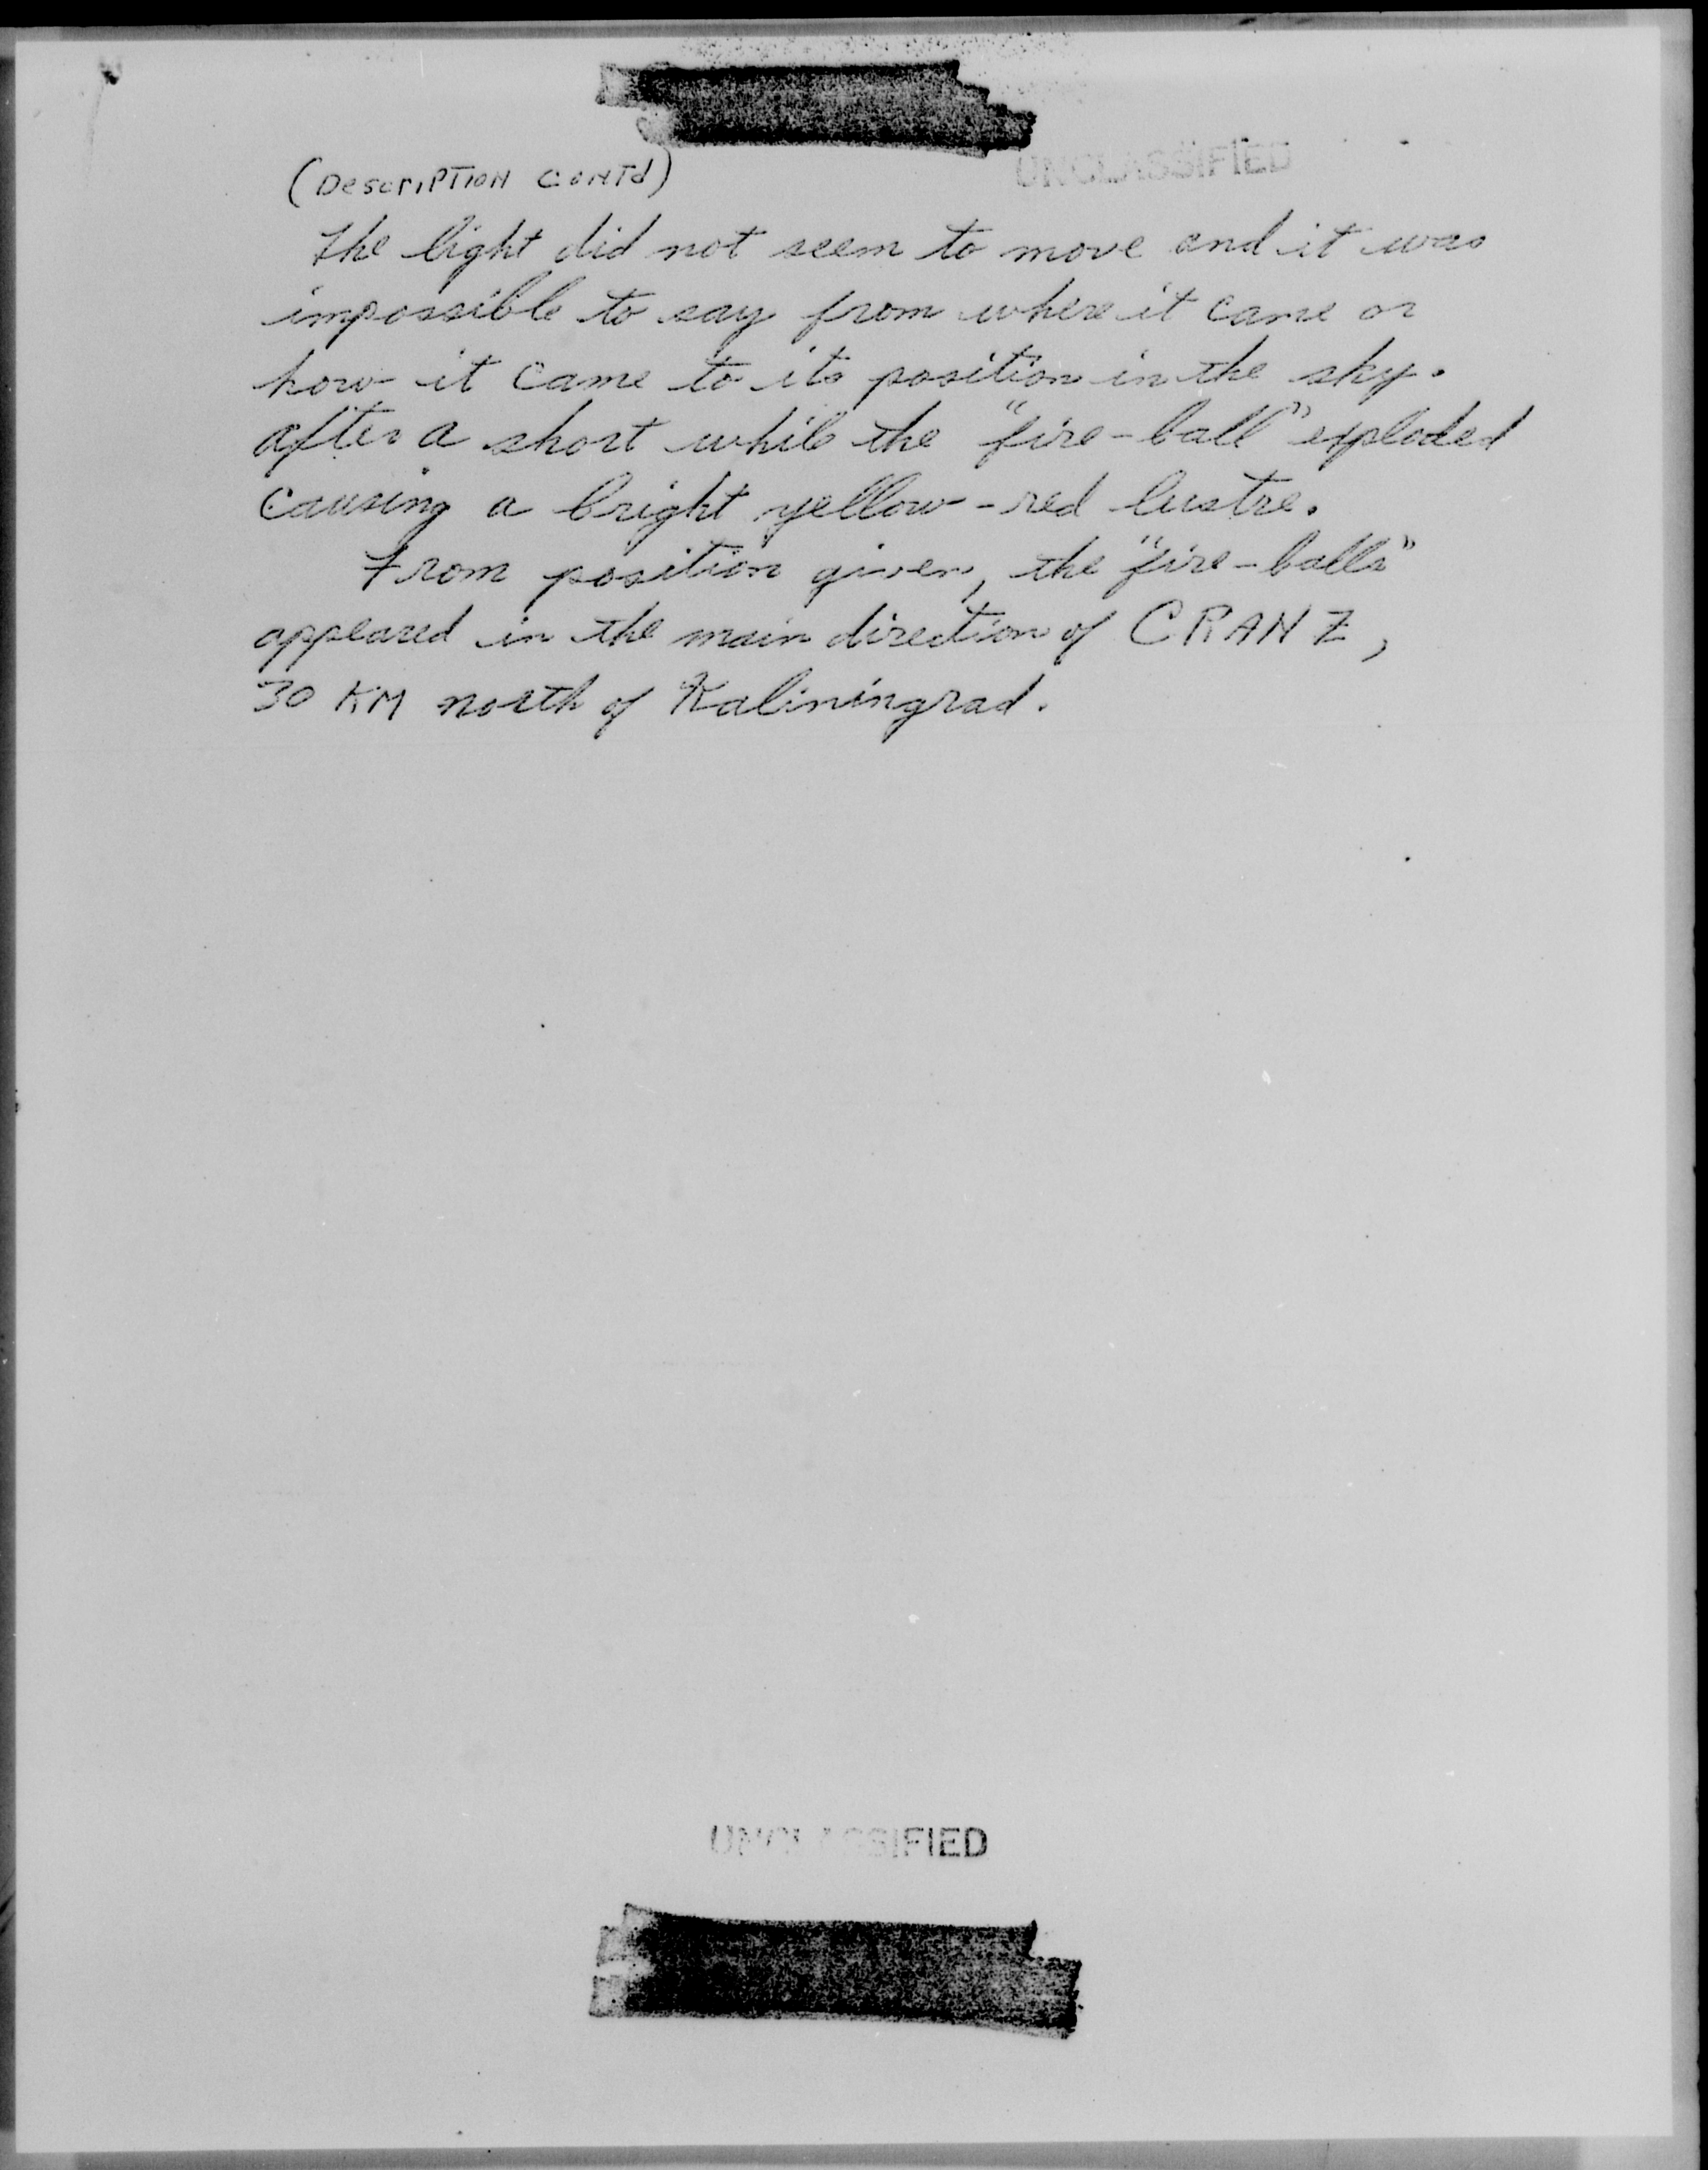 UNCLASSIFIED
(Description Cont'd)
The light did not seem to move and it was
impossible to say from where it came or
how it came to its position in the sky.
after a short while the "fire-ball" exploded
causing a bright yellow-red lustre.
From position given, the "fire-balls"
appeared in the main direction of CRANZ,
30 KM north of Kaliningrad.
UNCLASSIFIED